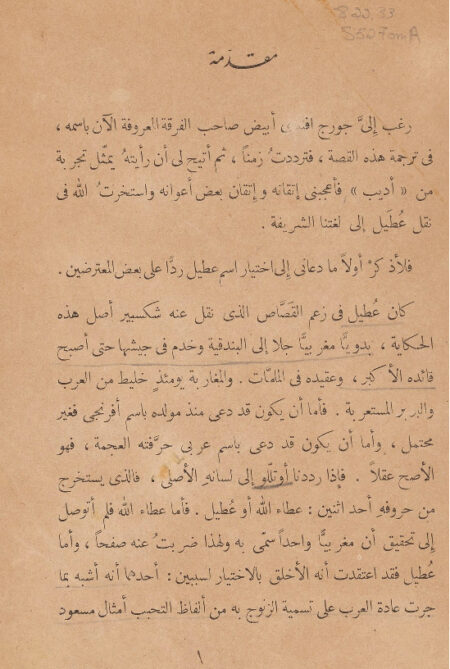 822.33
S527omA
مقدمة
رغب إلىَّ جورج افندى أبيض صاحب الفرقة المعروفة الآن باسمه ،
فى ترجمة هذه القصة ، فترددتُ زمناً ، ثم أتيح لى أن رأيتهُ يمثّل تجربة
من « أديب » فأعجبنى إتقانه وإتقان بعض أعوانه واستخرتُ الله فى
نقل عُطَيل إلى لغتنا الشريفة .
فلأذكرْ أولاً ما دعانى إلى اختيار اسم عطيل ردًّا على بعض المعترضين .
كان عُطيل فى زعم القَصَّاص الذى نقل عنه شكسبير أصل هذه
الحكاية ، بدويًّا مغربيًّا جلا إلى البندقية وخدم فى جيشها حتى أصبح
قائده الأكبر ، وعقيده فى الملمّات . والمغاربة يومئذٍ خليط من العرب
والبربر المستعربة . فأما أن يكون قد دعى منذ مولده باسم أفرنجى فغير
محتمل ، وأما أن يكون قد دعى باسم عربى حرَّفته العجمة ، فهو
الأصح عقلاً . فإذا رددنا أوتلّو إلى لسانهِ الأصلى ، فالذى يستخرج
من حروفهِ أحد اثنين : عطاء الله أو عُطيل . فأما عطاء الله فلم أتوصل
إلى تحقيق أن مغربيًّا واحداً سمّى به ولهذا ضربتُ عنه صفحاً ، وأما
عُطيل فقد اعتقدت أنه الأخلق بالاختيار لسببين : أحدهما أنه أشبه بما
جرت عادة العرب على تسمية الزنوج به من ألفاظ التحبب أمثال مسعود
١